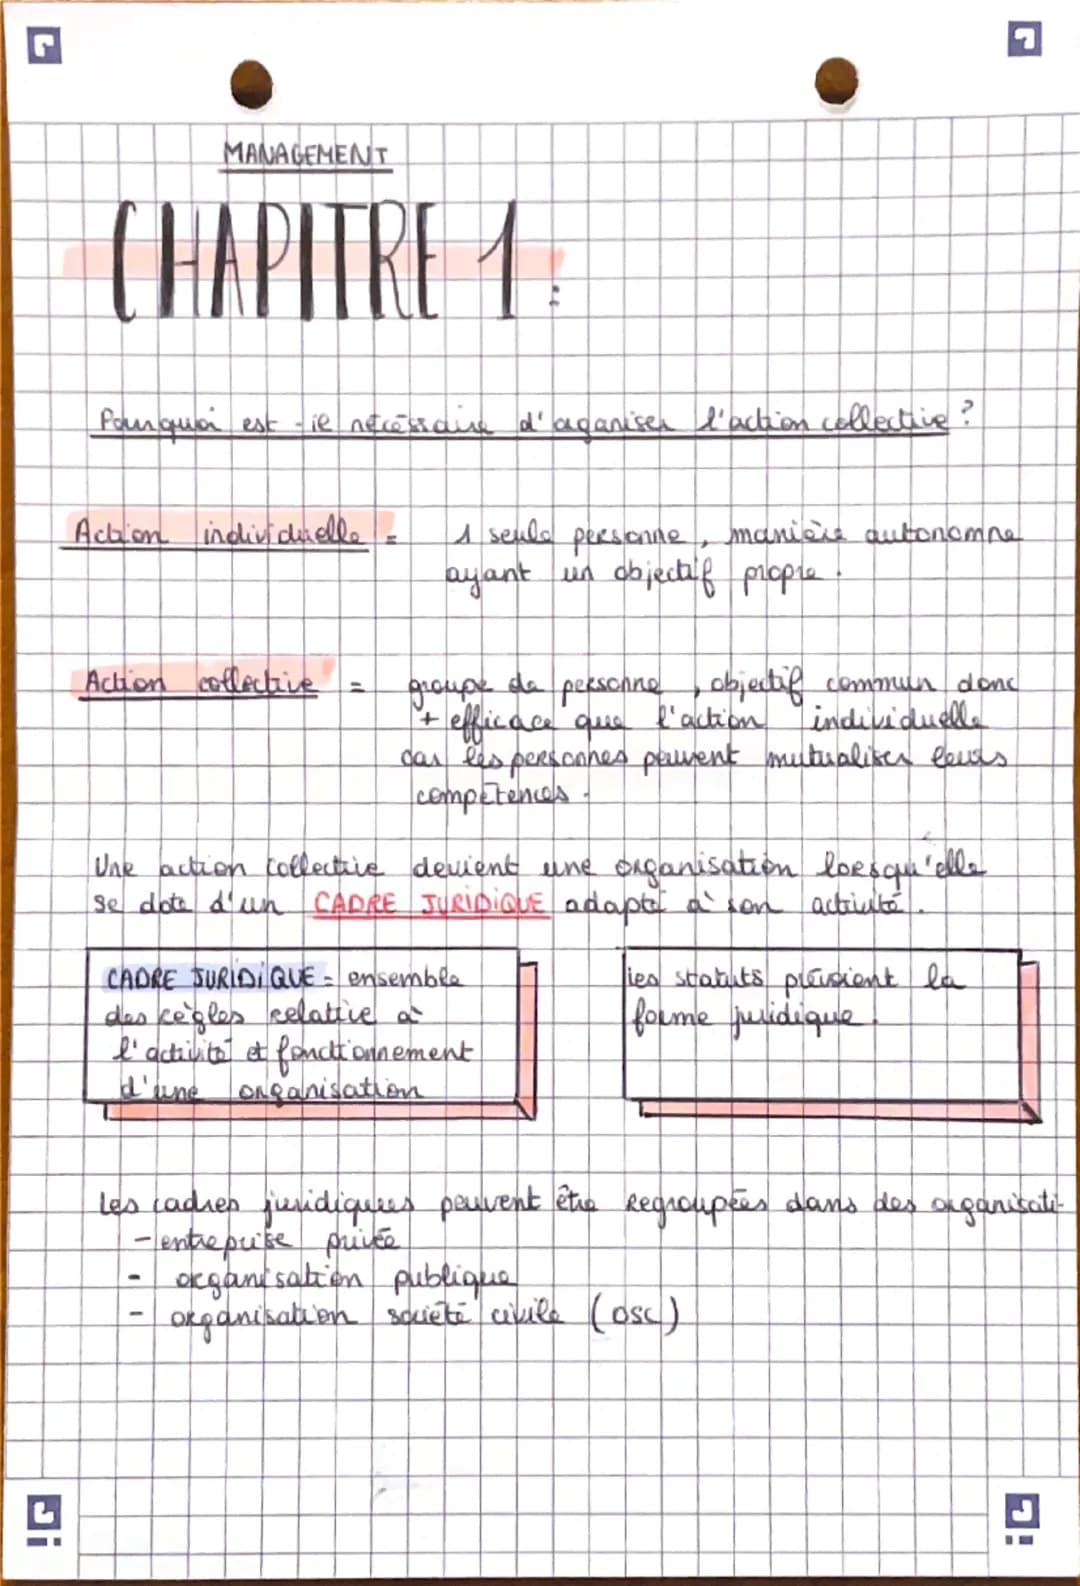 MANAGEMENT
CHAPITRE 1:
Pourquoi est-il nécéssaire d'organiser l'action collective ?
Action individuelle = 1 seule personne, manière autonomne
ayant un objectif propre.
Action collective = groupe de personne, objectif commun donc
+ efficace que l'action individuelle
car les personnes peuvent mutualiser leurs
compétences.
Une action collective devient une organisation lorsqu'elle
se dote d'un CADRE JURIDIQUE adapté à son activité.
CADRE JURIDIQUE = ensemble
des règles relative à
l'activité et fonctionnement
d'une organisation
les statuts prévoient la
forme juridique.
Les cadres juridiques peuvent être regroupées dans des organisati-
- entreprise privée
- organisation publique
- organisation société civile (osc)